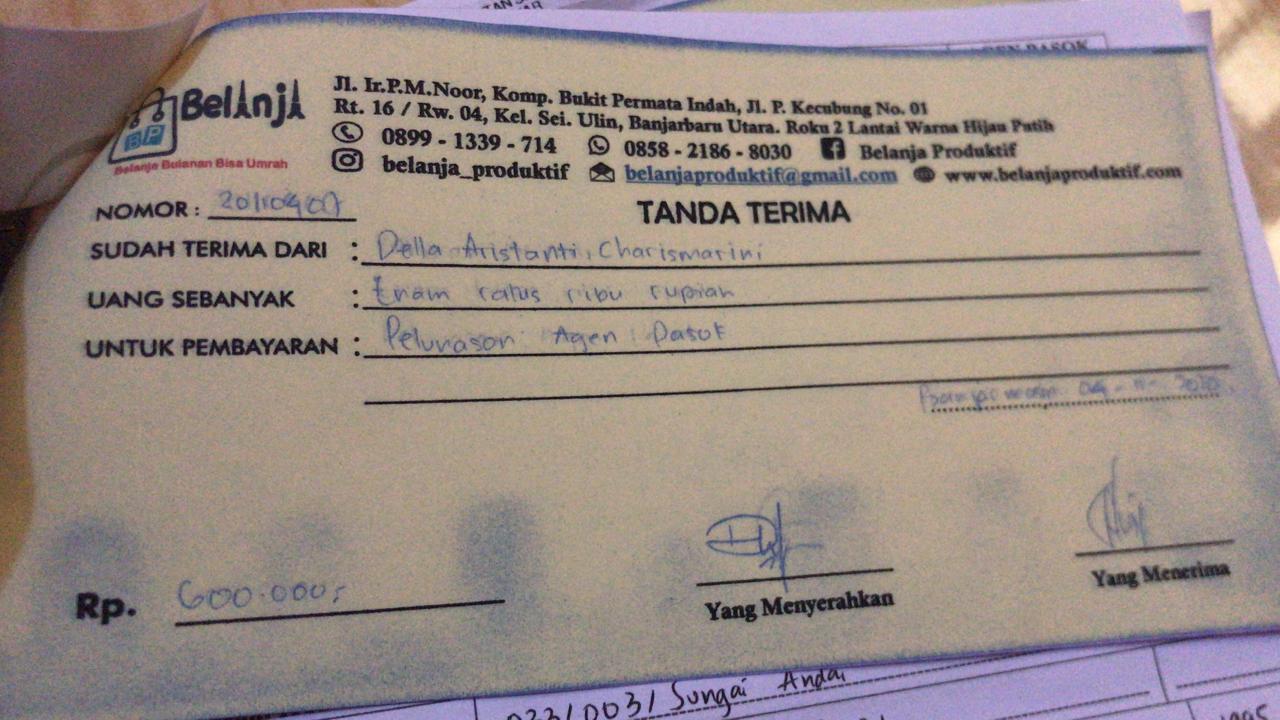 GEN PASOK
BelAnjA
BP
Belanja Bulanan Bisa Umrah
Jl. Ir.P.M.Noor, Komp. Bukit Permata Indah, Jl. P. Kecubung No. 01
Rt. 16 / Rw. 04, Kel. Sei. Ulin, Banjarbaru Utara. Roku 2 Lantai Warna Hijau Putih
0899 - 1339 - 714 0858 - 2186 - 8030 Belanja Produktif
belanja_produktif belanjaproduktif@gmail.com www.belanjaproduktif.com
NOMOR :
TANDA TERIMA
SUDAH TERIMA DARI : Della Aristanti, Charismarini
UANG SEBANYAK : Enam ratus ribu rupiah
UNTUK PEMBAYARAN : Pelunasan Agen Pasok
Rp. 600.000,-
Yang Menyerahkan
Yang Menerima
Sungai Andai